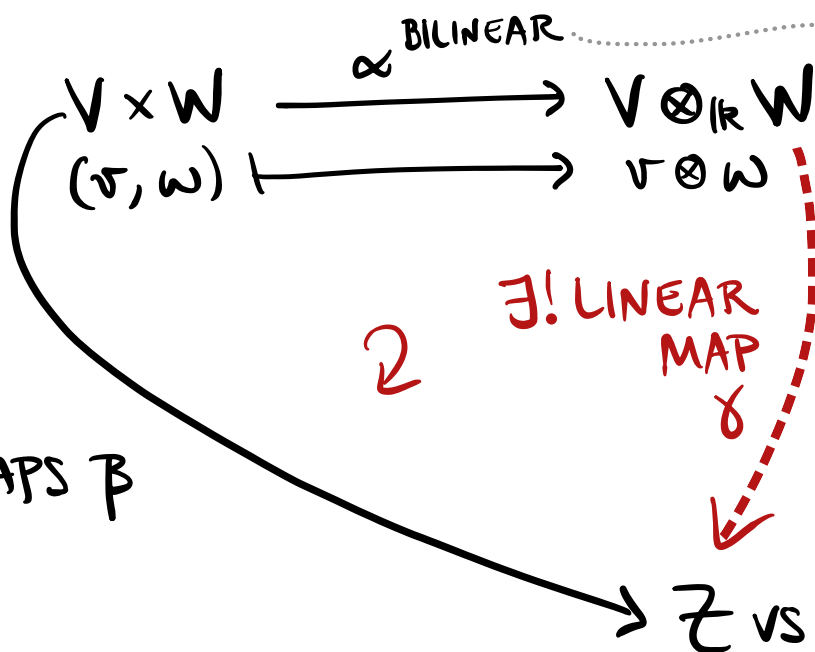 α BILINEAR
V × W ⟶ V ⊗_𝕜 W
(v, w) ⟼ v ⊗ w
∃! LINEAR
MAP
γ
APS β
Z vs